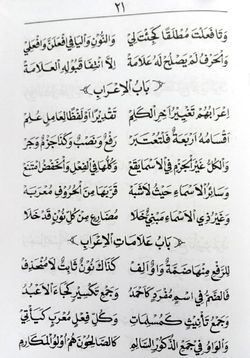 ٢١
وَتَا فَعَلْتَ مُطْلَقًا كَجِئْتَ لِي وَالنُّونِ وَالْيَا فِي افْعَلَنَّ وَافْعَلِي
وَالْحَرْفُ لَمْ يَصْلُحْ لَهُ عَلَامَةْ إِلَّا انْتِفَا قَبُولِهِ الْعَلَامَةْ
﴿ بَابُ الْإِعْرَابِ ﴾
إِعْرَابُهُمْ تَغْيِيرُ آخِرِ الْكَلِمْ تَقْدِيرًا أَوْ لَفْظًا لِعَامِلٍ عُلِمْ
أَقْسَامُهُ أَرْبَعَةٌ فَلْتُعْتَبَرْ رَفْعٌ وَنَصْبٌ وَكَذَا جَزْمٌ وَجَرْ
وَالْكُلُّ غَيْرَ الْجَزْمِ فِي الْأَسْمَا يَقَعْ وَكُلُّهَا فِي الْفِعْلِ وَالْخَفْضُ امْتَنَعْ
وَسَائِرُ الْأَسْمَاءِ حَيْثُ لَا شَبَهْ قَرَّبَهَا مِنَ الْحُرُوفِ مُعْرَبَةْ
وَغَيْرُ ذِي الْأَسْمَاءِ مَبْنِيٌّ خَلَا مُضَارِعٍ مِنْ كُلِّ نُونٍ قَدْ خَلَا
﴿ بَابُ عَلَامَاتِ الْإِعْرَابِ ﴾
لِلرَّفْعِ مِنْهَا ضَمَّةٌ وَاوٌ أَلِفْ كَذَاكَ نُونٌ ثَابِتٌ لَا مُنْحَذِفْ
فَالضَّمُّ فِي اسْمٍ مُفْرَدٍ كَأَحْمَدُ وَجَمْعِ تَكْسِيرٍ كَجَاءَ الْأَعْبُدُ
وَجَمْعِ تَأْنِيثٍ كَمُسْلِمَاتِ وَكُلِّ فِعْلٍ مُعْرَبٍ كَيَأْتِي
وَالْوَاوُ فِي جَمْعِ الذُّكُورِ السَّالِمِ كَالصَّالِحُونَ هُمْ أُولُو الْمَكَارِمِ